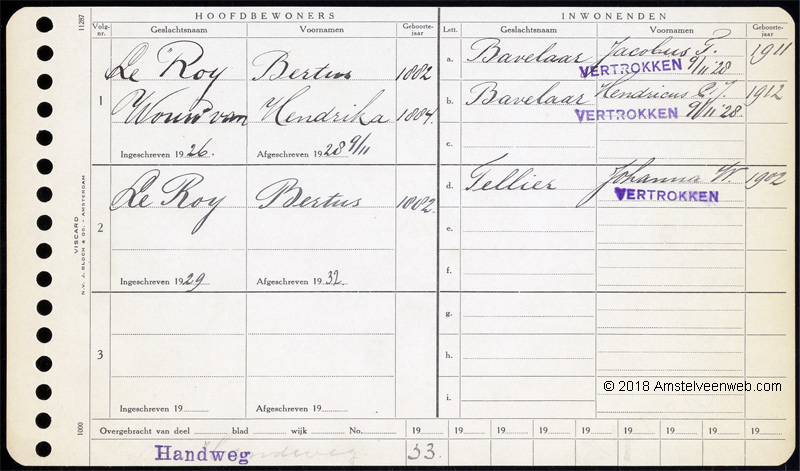 HOOFDBEWONERS
Volg-nr. Geslachtsnaam Voornamen Geboorte-jaar
Le Roy Bertus 1882
1
Wouw van Hendrika 1884.
Ingeschreven 1926. Afgeschreven 1928 9/11
Le Roy Bertus 1882.
2
Ingeschreven 1929 Afgeschreven 1932.
3
Ingeschreven 19 Afgeschreven 19
INWONENDEN
Lett. Geslachtsnaam Voornamen Geboorte-jaar
a. Bavelaar Jacobus P. 1911
VERTROKKEN 9/11 '28
b. Bavelaar Hendricus C. J. 1912
VERTROKKEN 9/11 '28.
c.
d. Tellier Johanna W. 1902
VERTROKKEN
e.
f.
g.
h.
i.
© 2018 Amstelveenweb.com
Overgebracht van deel blad wijk No. 19 19 19 19 19 19 19 19 19
Handweg 33.
11287
VISCARD
N.V. J. BLOCH & CO. - AMSTERDAM
1000